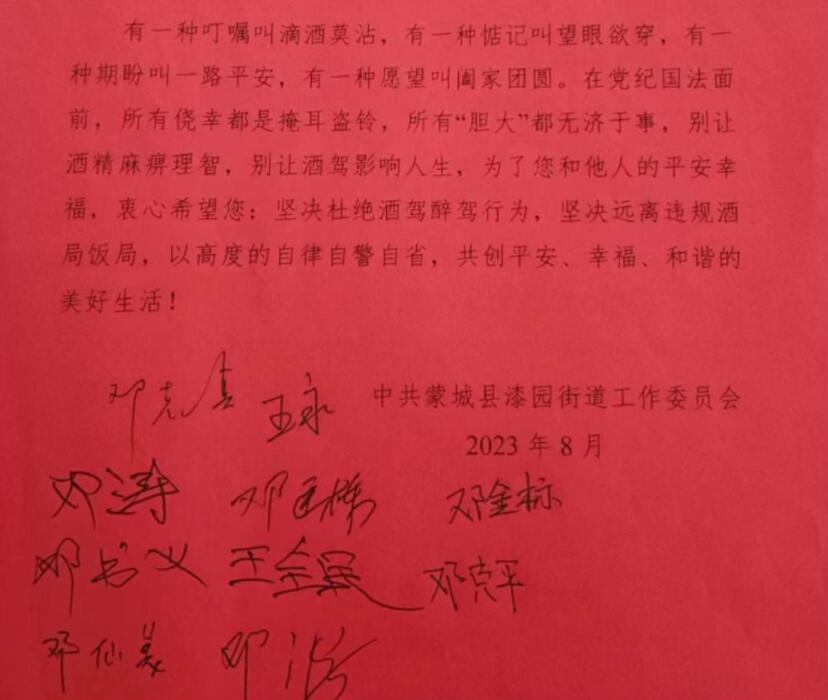 有一种叮嘱叫滴酒莫沾，有一种惦记叫望眼欲穿，有一
种期盼叫一路平安，有一种愿望叫阖家团圆。在党纪国法面
前，所有侥幸都是掩耳盗铃，所有“胆大”都无济于事，别让
酒精麻痹理智，别让酒驾影响人生，为了您和他人的平安幸
福，衷心希望您：坚决杜绝酒驾醉驾行为，坚决远离违规酒
局饭局，以高度的自律自警自省，共创平安、幸福、和谐的
美好生活！
邓克真 王永 中共蒙城县漆园街道工作委员会
2023 年 8 月
邓涛 邓 邓金标
邓书义 王全 邓克平
邓仙美 邓